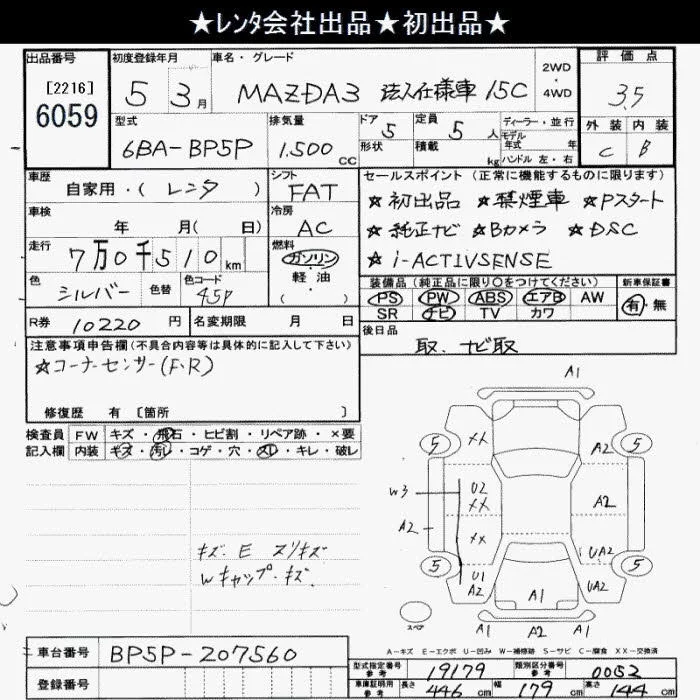 ★レンタ会社出品★初出品★
出品番号
[2216]
6059
初度登録年月
5 3月
車名・グレード
MAZDA3 法人仕様車 15C
2WD
・
4WD
評価点
3.5
外装 内装
C B
型式
6BA-BP5P
排気量
1.500 CC
ドア 5
形状
定員 5 人
積載 kg
ディーラー・並行
モデル
年式 年
ハンドル 左・右
車歴
自家用・( レンタ )
シフト
FAT
車検
年 月( 日)
冷房
AC
走行
7万0千510km
燃料
ガソリン
・軽油・
( )
色
シルバー
色替
色コード
45P
R券 10220 円
名変期限 月 日
セールスポイント(正常に機能するものに限ります)
★初出品 ★禁煙車 ★Pスタート
★純正ナビ ★Bカメラ ★DSC
★i-ACTIVSENSE
装備品(純正品に限り○をつけてください)
PS PW ABS エアB AW
SR ナビ TV カワ
新車保証書
有・無
後日品
取、ナビ取
注意事項申告欄(不具合内容等は具体的に記入して下さい)
★コーナーセンサー(F・R)
修復歴 有 〔箇所 〕
検査員
記入欄
FW キズ・飛石・ヒビ割・リペア跡・×要
内装 キズ・汚レ・コゲ・穴・スレ・キレ・破レ
キズ、E スリキズ
Wキャップ・キズ、
A1
5 XX A2 5
W3 U2 XX A2
A2 XX
5 U1 A2 UA2 5
UA2
A1
A1 A2 A1
スペア
A-キズ E-エクボ U-凹み W-補修跡 S-サビ C-腐食 XX-交換済
車台番号 BP5P-207560
登録番号
型式指定番号
参考
19179
類別区分番号
参考
0052
車庫証明用
参考
長さ 446 cm 幅 179 cm 高さ 144 cm